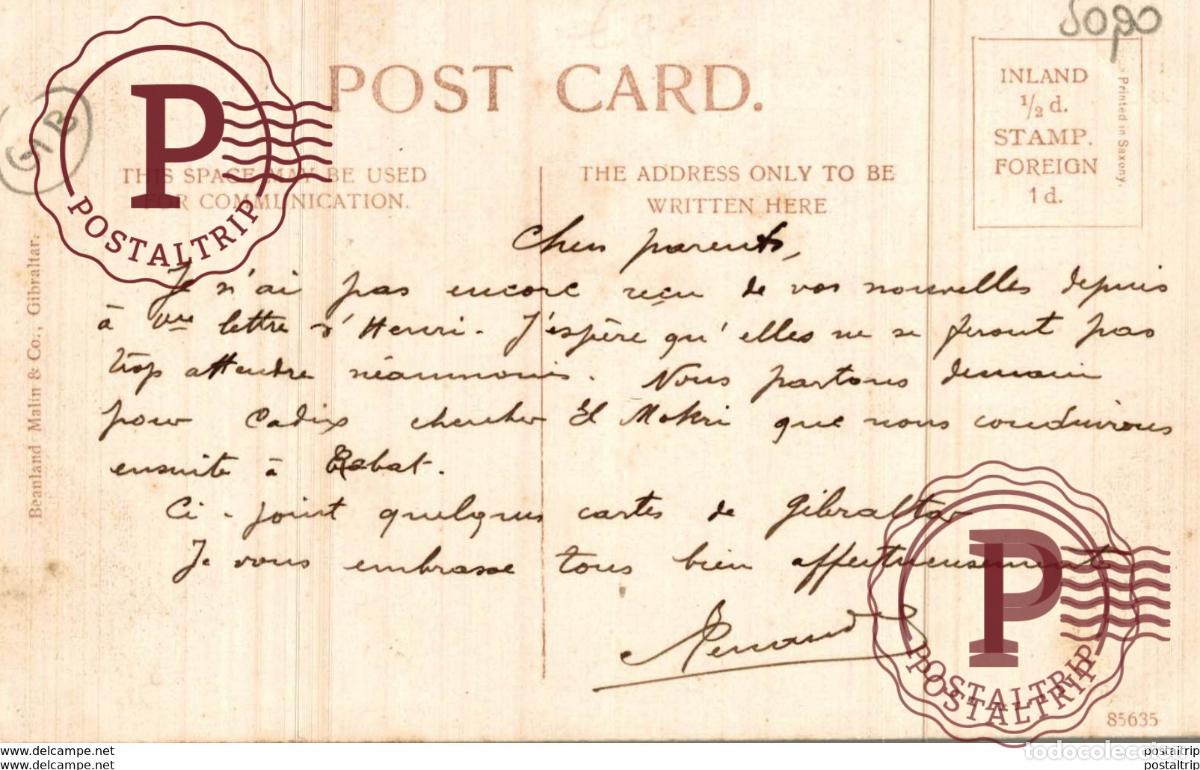 5020
GIB
POST CARD.
INLAND
½ d.
STAMP.
FOREIGN
1 d.
Printed in Saxony.
THIS SPACE MAY BE USED
FOR COMMUNICATION.
THE ADDRESS ONLY TO BE
WRITTEN HERE
Beanland Malin & Co., Gibraltar.
Chers parents,
Je n'ai pas encore reçu de vos nouvelles depuis
à lettre d'Henri. J'espère qu'elles ne se feront pas
trop attendre néanmoins. Nous partons demain
pour Cadix chercher El Mokri que nous conduirons
ensuite à Rabat.
Ci-joint quelques cartes de Gibraltar
Je vous embrasse tous bien affectueusement
85635
P
POSTALTRIP
P
POSTALTRIP
POSTALTRIP
todocoleccion
www.delcampe.net
postaltrip
www.delcampe.net
postaltrip